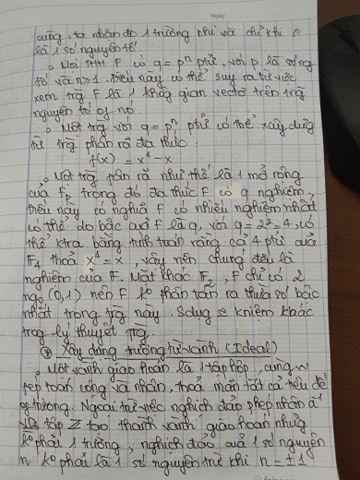 cũng, ta nhận đc 1 trường khi và chỉ khi n
là 1 số nguyên tố.
Mọi THH F có q = pⁿ ptử, với p là số ng
tố và n≥1. Điều này có thể suy ra từ việc
xem trg F là 1 không gian vectơ trên trg
nguyên tố of nó.
Một trg với q = pⁿ ptử có thể xây dựng
từ trg phân rã đa thức
f(x) = x^q - x
Một trg phân rã như thế là 1 mở rộng
của Fp trong đó đa thức F có q nghiệm,
điều này có nghĩa F có nhiều nghiệm nhất
có thể do bậc của F là q, với q = 2² = 4, có
thể ktra bằng tính toán rằng cả 4 ptử của
F₄ thoả x⁴ = x, vậy nên chúng đều là
nghiệm của F. Mặt khác F₂, F chỉ có 2
ngo (0,1) nên F k° phân tán ra thừa số bậc
nhất trong trg này. Sdụng khniệm khác
trog lý thuyết trg.
Xây dựng trường từ vành (Ideal)
Một vành giao hoán là 1 tập hợp, cùng w
phép toán cộng và nhân, thoả mãn tất cả tiêu đề
of trường. Ngoại trừ việc nghịch đảo phép nhân a⁻¹
VD: tập Z tạo thành vành giao hoán nhưg
k° phải 1 trường, nghịch đảo của 1 số nguyên
n k° phải là 1 số nguyên trừ khi n = ±1